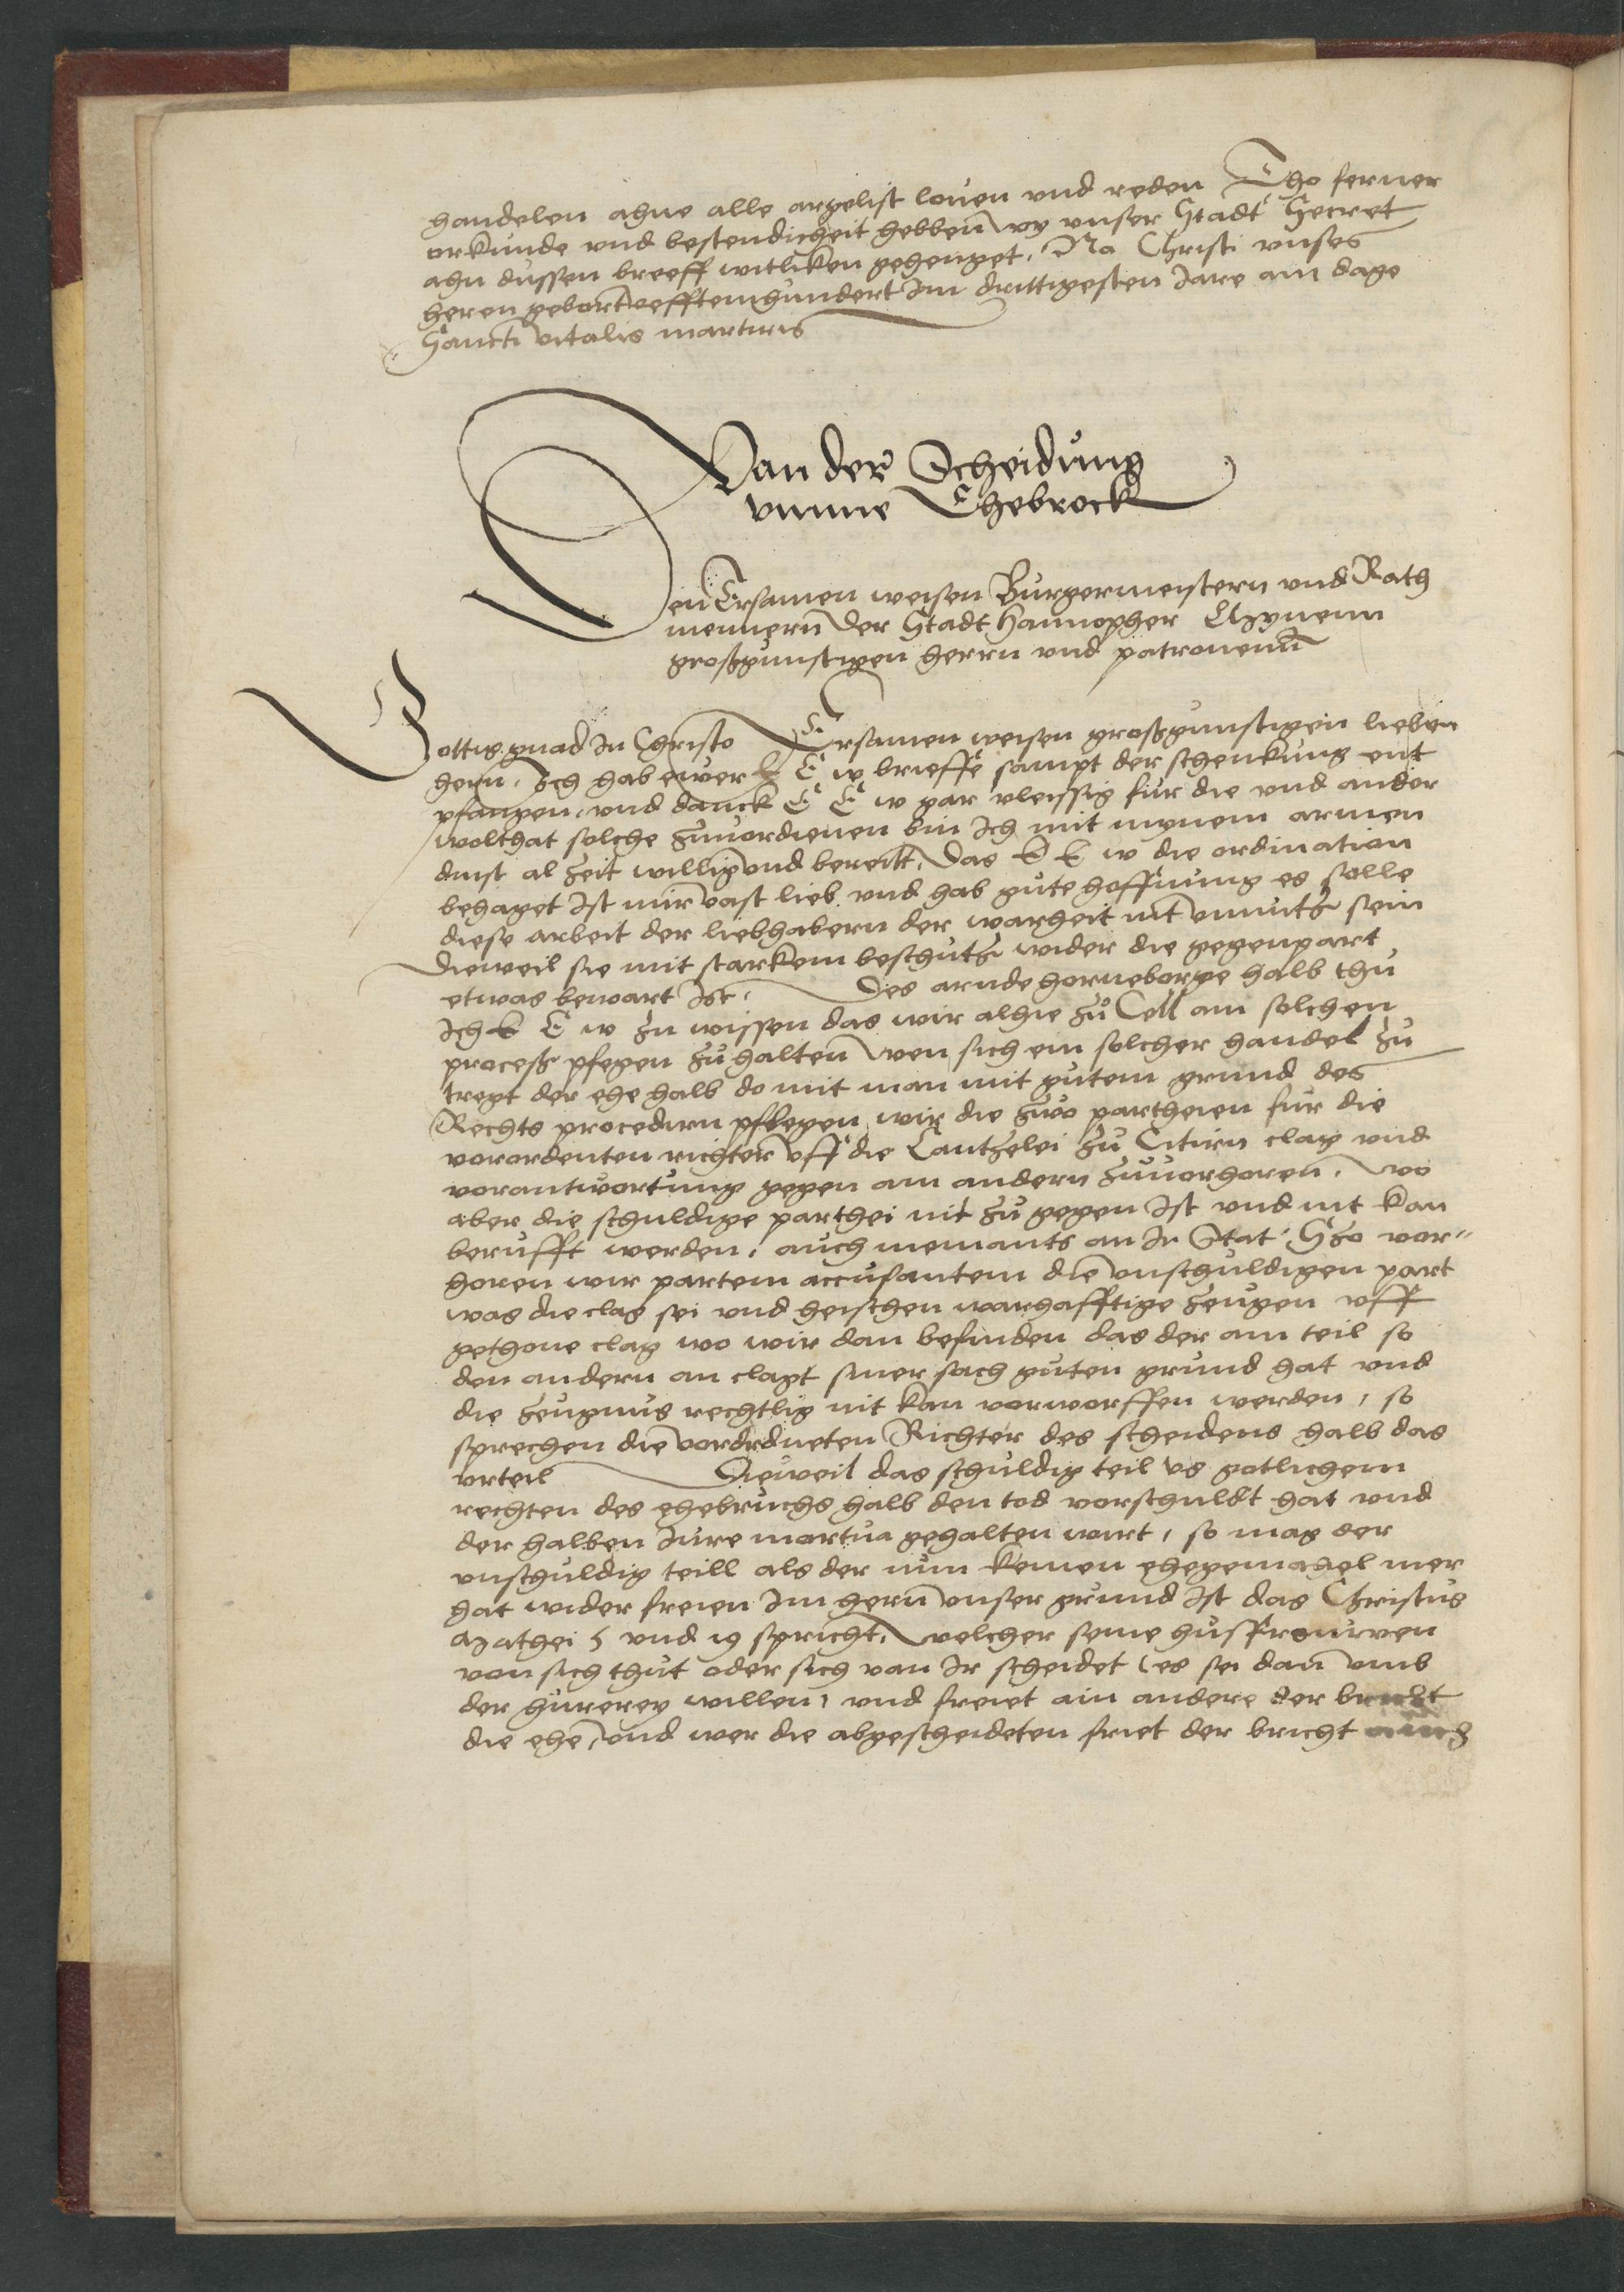 handelen ahne alle argelist louen vnd reden Tho ferner
orkunde vnd bestendicheit hebben wy vnser Stadt Secret
ahn dussen breeff witliken gehenget. Na Christi vnses
heren gebort veffteinhundert Im drittigesten Jare am dage
Sancti vitalis martiris
Van der Scheidung
vmme Ehebrock
Den Ersamen weisen Burgermeistern vnd Rath
mennern der Stadt Hannopher Mynenn
großgunstigen herrn vnd patronenn
Gottis gnad In Christo Ersamen weisen großgunstigen lieben
hern. Ich hab ewer E E w brieffe sampt der schenkung ent
pfangen, vnd danck E E w gar vleissig fur die vnd ander
wolthat solche zuuordienen bin Ich mit mynem armen
dinst al zeit willig vnd bereitt. Das E E w die ordination
behaget Ist mir vast lieb vnd hab gute hoffnung es solle
diese arbeit der liebhabern der warheit nit vnnutz sein
dieweil sie mit starkem beschutz wider die gegenpart
etwas bewart Ist. Des arnde horneborge halb thu
Ich E E w zu wissen das wir alhie zu Cell am solchen
proceß pflegen zu halten wen sich ein solcher handel zu
tregt der ehe halb do mit man mit gutem grund des
Rechts procedirn pflegen wir die zwo partheien fur die
vorordenten richter vff die Cantzelei zu Citirn clag vnd
vorantwortung gegen am andern zuuorhoren. wo
aber die schuldige parthei nit zu gegen Ist vnd nit kan
berufft werden, auch niemants an Ir Stat, Szo vor-
horen wir partem accusantem die vnschuldigen part
was die clag sei vnd heischen warhafftige zeugen vff
gethone clag wo wir dan befinden das der am teil so
den andern an clagt siner sach guten grund hat vnd
die zeugnus rechtlig nit kan vorworffen werden, so
sprechen die vorordneten Richter des scheidens halb das
vrteil Dieweil das schuldig teil vs gotlichem
rechten des ehebruchs halb den tod vorschuldt hat vnd
der halben Iure mortua gehalten wirt, so mag der
vnschuldig teill als der nun keinen ehegemahel mer
hat wider freien Im hern vnser grund Ist das Christus
Mathei 5 vnd 19 spricht. welcher seine husfrouwen
von sich thut oder sich van Ir scheidet (es sei dan vmb
der hurerey willen) vnd freiet ain andere der bricht
die ehe, vnd wer die abgescheideten friet der bricht auch